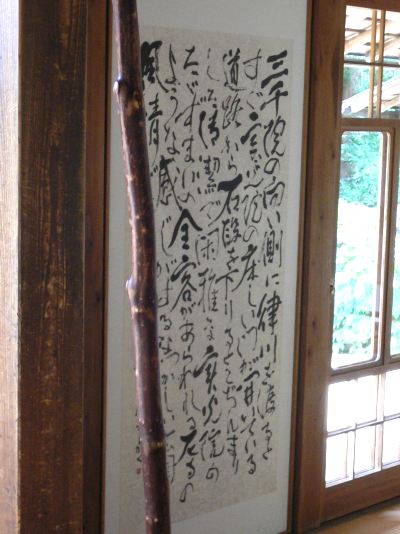 三千院の向い側に律川を渡ると
すぐ実光院の床しい が開いている
道路から石段を下りるとこぢんまり
した清潔で閑雅な実光院の
たたずまいの全容があらわれる の
ような感じがするなつかしい